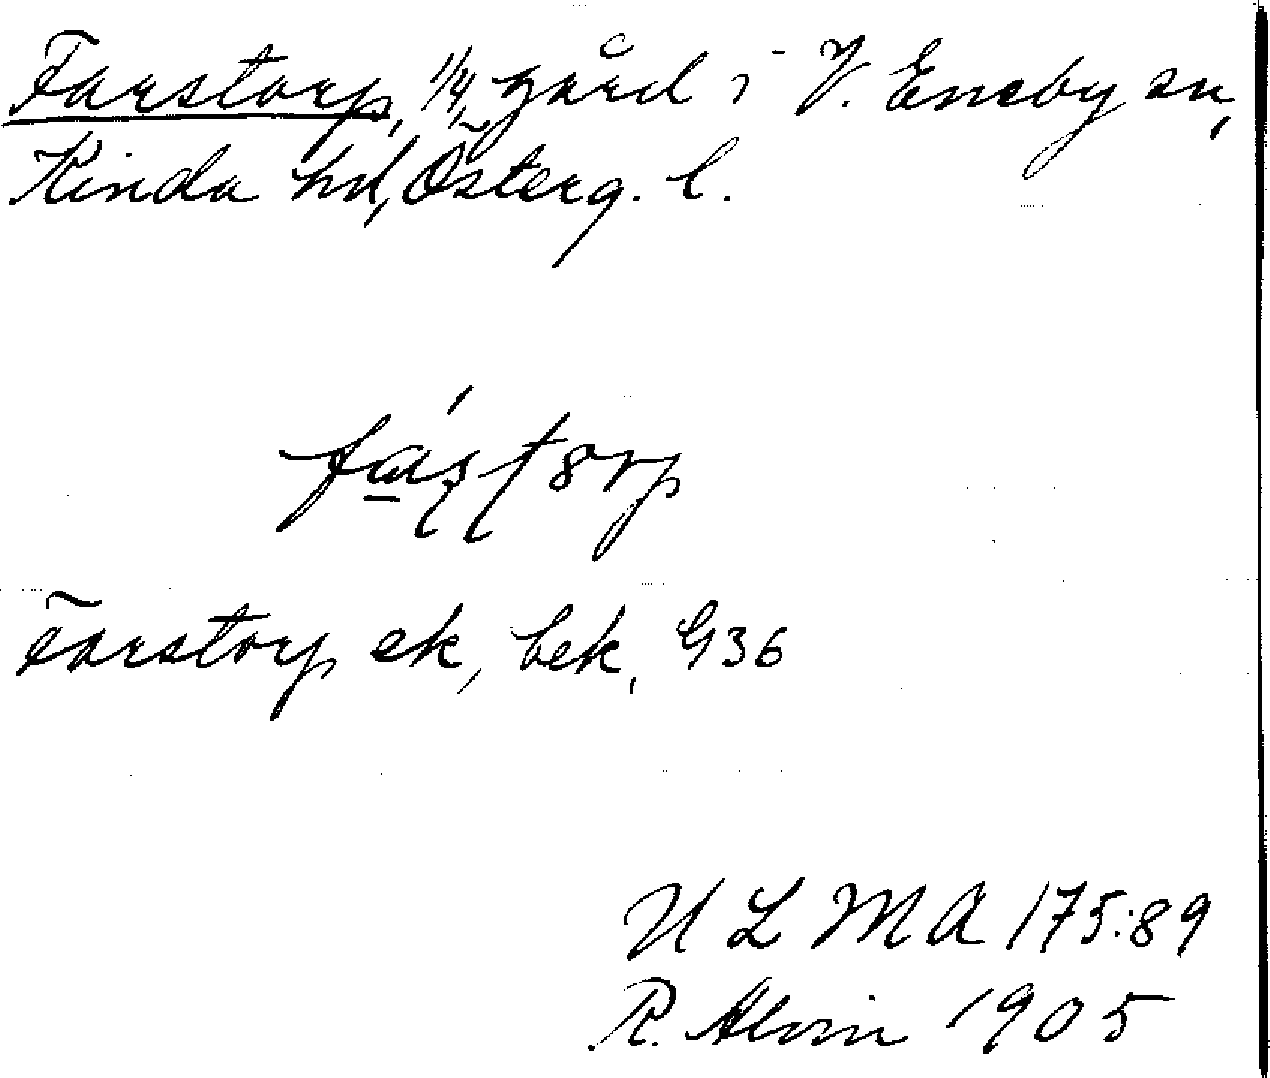 Farstorp, 1/4 gård i V. Eneby sn,
Kinda hd, Österg. l.
Farstorp ek, bek, G36
ULMA 175:89
R. Alvin 1905